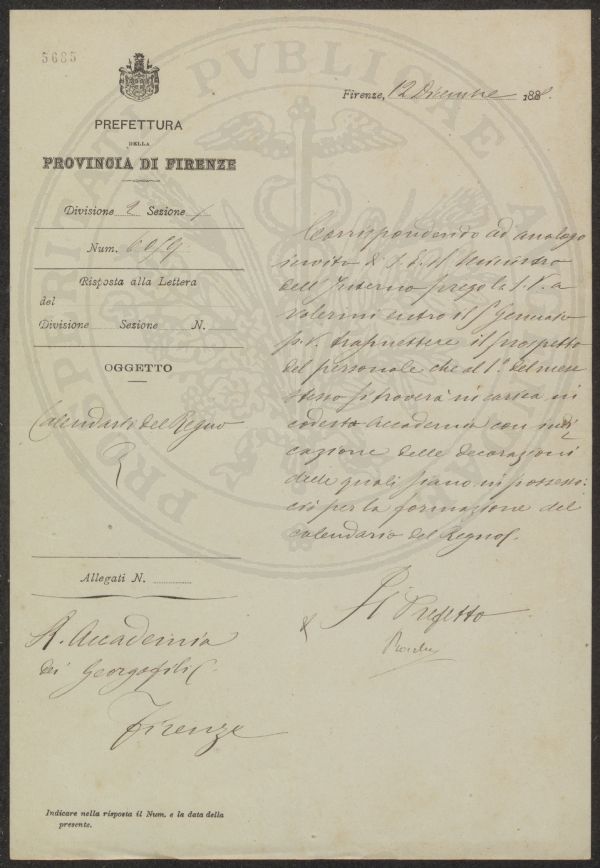 5685
PREFETTURA
DELLA
PROVINCIA DI FIRENZE
Divisione 2 Sezione 1
Num.
Risposta alla Lettera
del
Divisione Sezione N.
OGGETTO
Calendario del Regno
R
Allegati N.
R. Accademia
dei Georgofili
Firenze
Indicare nella risposta il Num. e la data della
presente.
Firenze, 12 Dicembre 188
Corrispondendo ad analogo
invito di S. E. il Ministro
dell'Interno prego la S. V. a
volermi entro il 5 Gennaio
p. v. trasmettere il prospetto
del personale che al 1º del mese
stesso si troverà in carica in
codesta Accademia con indi
cazione delle decorazioni
delle quali siano in possesso:
ciò per la formazione del
calendario del Regno.
Il Prefetto
PROSPERITATI PVBLICAE AVGENDAE